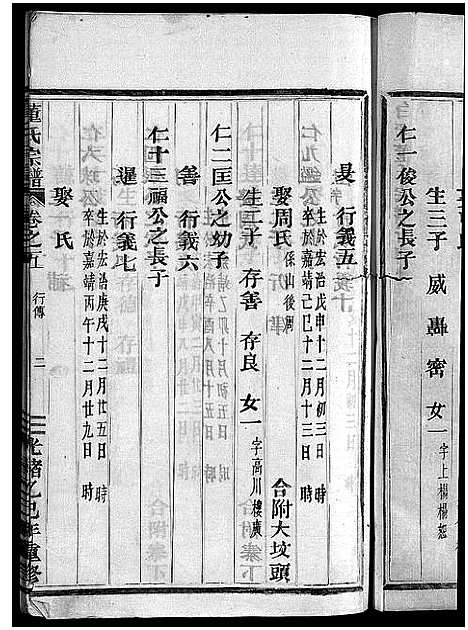 生三子 威 轟 密 女一 字上楊楊恕
仁一俊公之長子
旻 行義五
生於宏治戊申十二月初三日 時
卒於嘉靖己巳十二月十三日 時
娶周氏 係山後周 合附大坟頭
生二子 存善 存良 女一 字高川樓廣
仁二匡公之幼子
善 行義六
仁十三福公之長子
暹 行義七
生於宏治庚戌十二月廿五日 時
卒於嘉靖丙午十二月廿九日 時
娶 氏
董氏宗譜 卷之五 行傳 二 光緒乙巳年重修